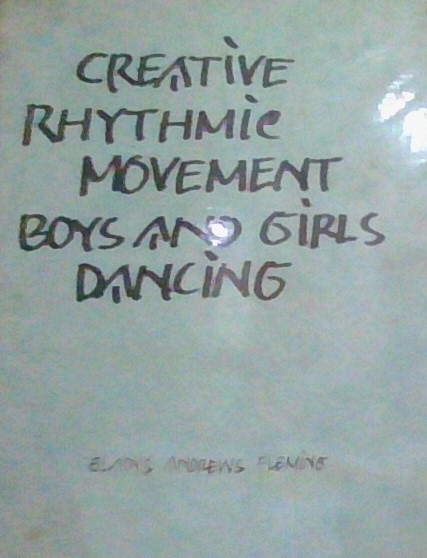 CREATiVE
RHYTHMiC
MOVEMENT
BOYS AND GiRLS
DANCiNG
GLADYS ANDREWS FLEMiNG